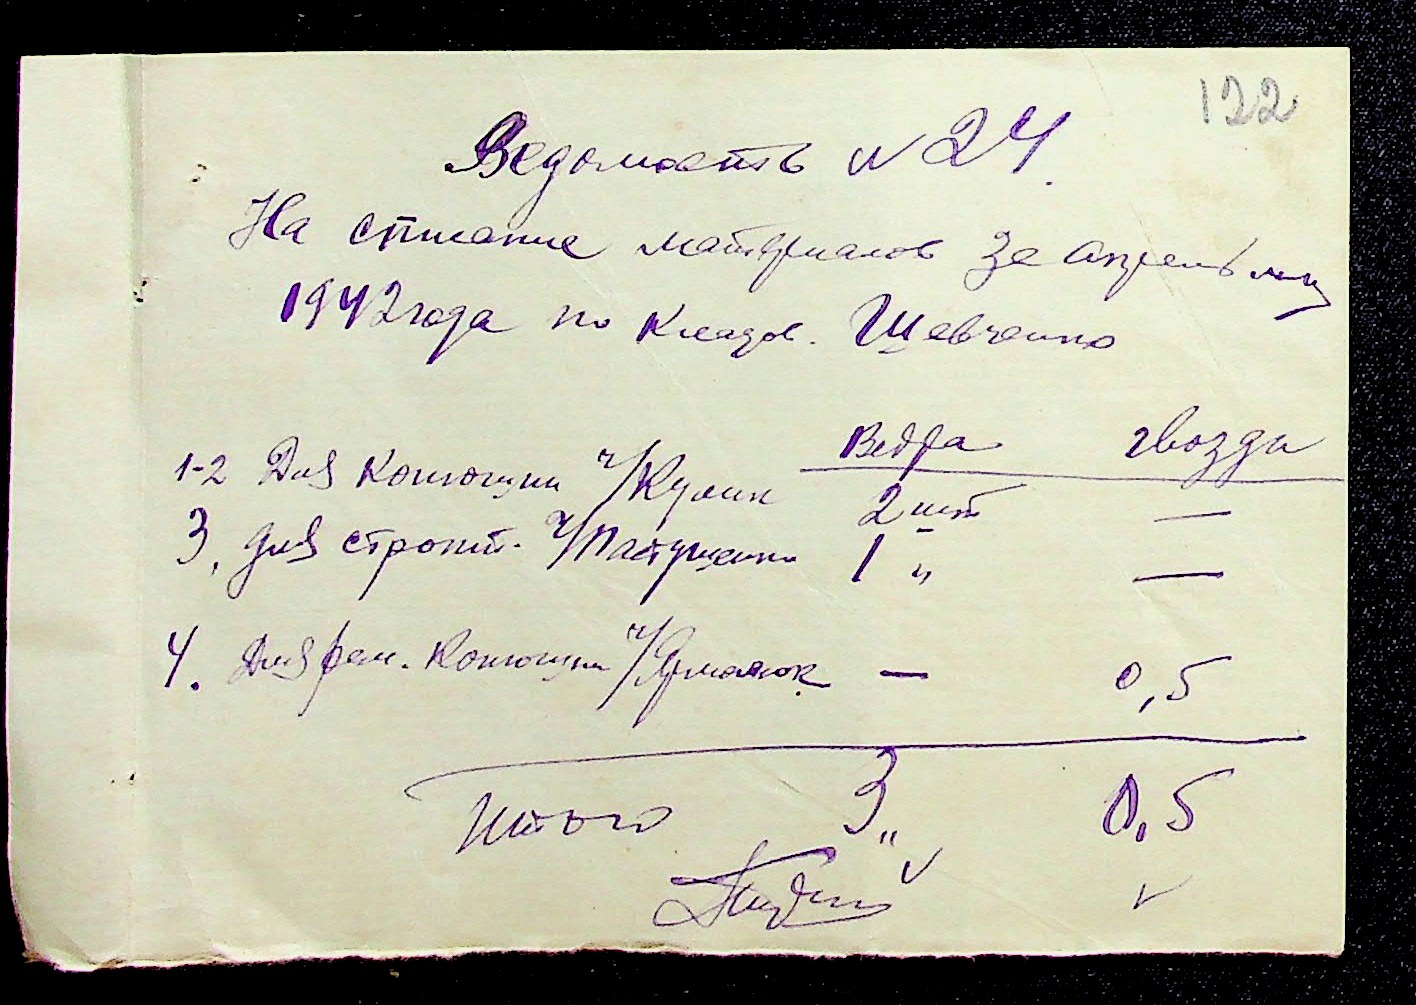 122
Ведомость N 24.
На списание материалов за апрель м-ц
1942 года по кладов. Шевченко
Ведра гвозди
1-2 Для конюшни ч/Кулик 2 шт —
3. Для строит. ч/Пастушенко 1 " —
4. Для рем. конюшни ч/Ярмолюк — 0,5
Итого 3 " 0,5